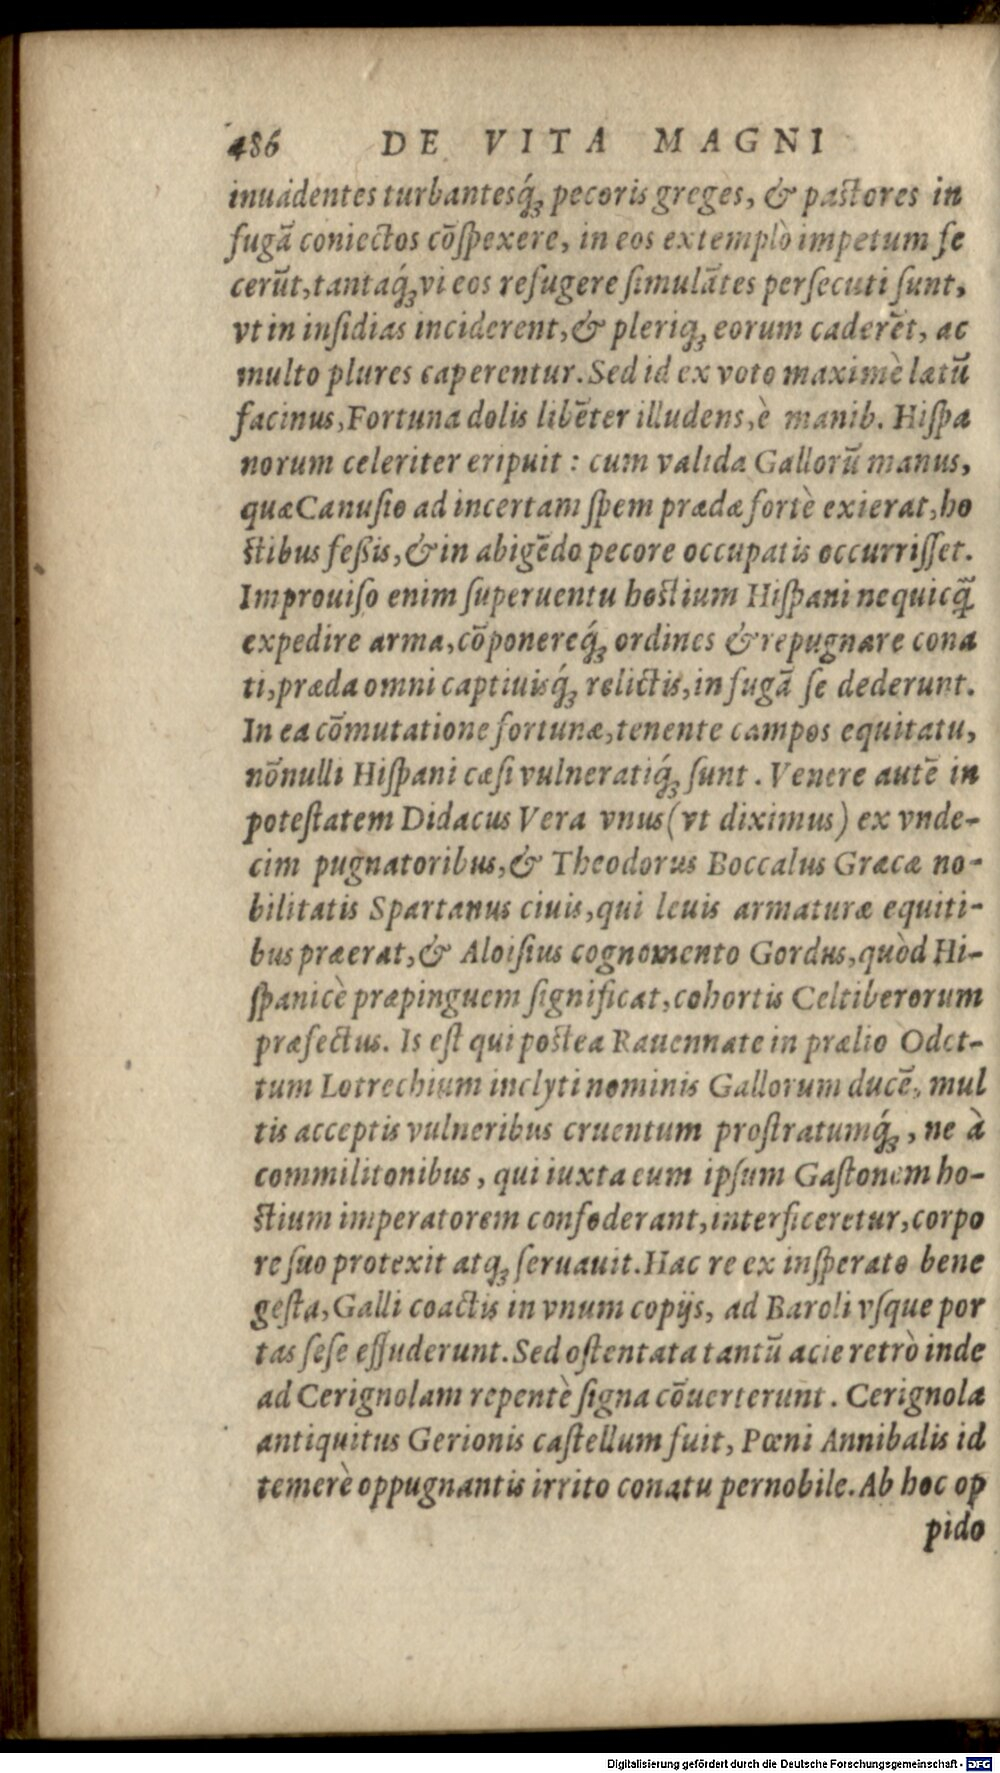 486 DE VITA MAGNI
inuadentes turbantesq́ꝫ pecoris greges, & pastores in
fugã coniectos cõſpexere, in eos extemplò impetum fe
cerũt, tantaq́ꝫ vi eos refugere ſimulãtes perſecuti ſunt,
vt in inſidias inciderent, & pleriqꝫ eorum caderẽt, ac
multo plures caperentur. Sed id ex voto maximè lætũ
facinus, Fortuna dolis libẽter illudens, è manib. Hiſpa
norum celeriter eripuit : cum valida Gallorũ manus,
quæ Canuſio ad incertam ſpem prædæ fortè exierat, ho
ſtibus feßis, & in abigẽdo pecore occupatis occurriſſet.
Improuiſo enim ſuperuentu hoſtium Hiſpani nequicq̃
expedire arma, cõponereq́ꝫ ordines & repugnare cona
ti, præda omni captiuisq́ꝫ relictis, in fugã ſe dederunt.
In ea cõmutatione fortunæ, tenente campos equitatu,
nõnulli Hiſpani cæſi vulneratiq́ꝫ ſunt . Venere autẽ in
poteſtatem Didacus Vera vnus (vt diximus) ex vnde-
cim pugnatoribus, & Theodorus Boccalus Græcæ no-
bilitatis Spartanus ciuis, qui leuis armaturæ equiti-
bus præerat, & Aloiſius cognomento Gordus, quòd Hi-
ſpanicè præpinguem ſignificat, cohortis Celtiberorum
præfectus. Is eſt qui poſtea Rauennate in prælio Odet-
tum Lotrechium inclyti nominis Gallorum ducẽ, mul
tis acceptis vulneribus cruentum proſtratumq́ꝫ , ne à
commilitonibus , qui iuxta eum ipſum Gaſtonem ho-
ſtium imperatorem confoderant, interficeretur, corpo
re ſuo protexit atqꝫ ſeruauit. Hac re ex inſperato bene
geſta, Galli coactis in vnum copijs, ad Baroli vſque por
tas ſeſe effuderunt. Sed oſtentata tantũ acie retrò inde
ad Cerignolam repentè ſigna cõuerterunt . Cerignola
antiquitus Gerionis caſtellum fuit, Pœni Annibalis id
temerè oppugnantis irrito conatu pernobile. Ab hoc op
pido
Digitalisierung gefördert durch die Deutsche Forschungsgemeinschaft - DFG